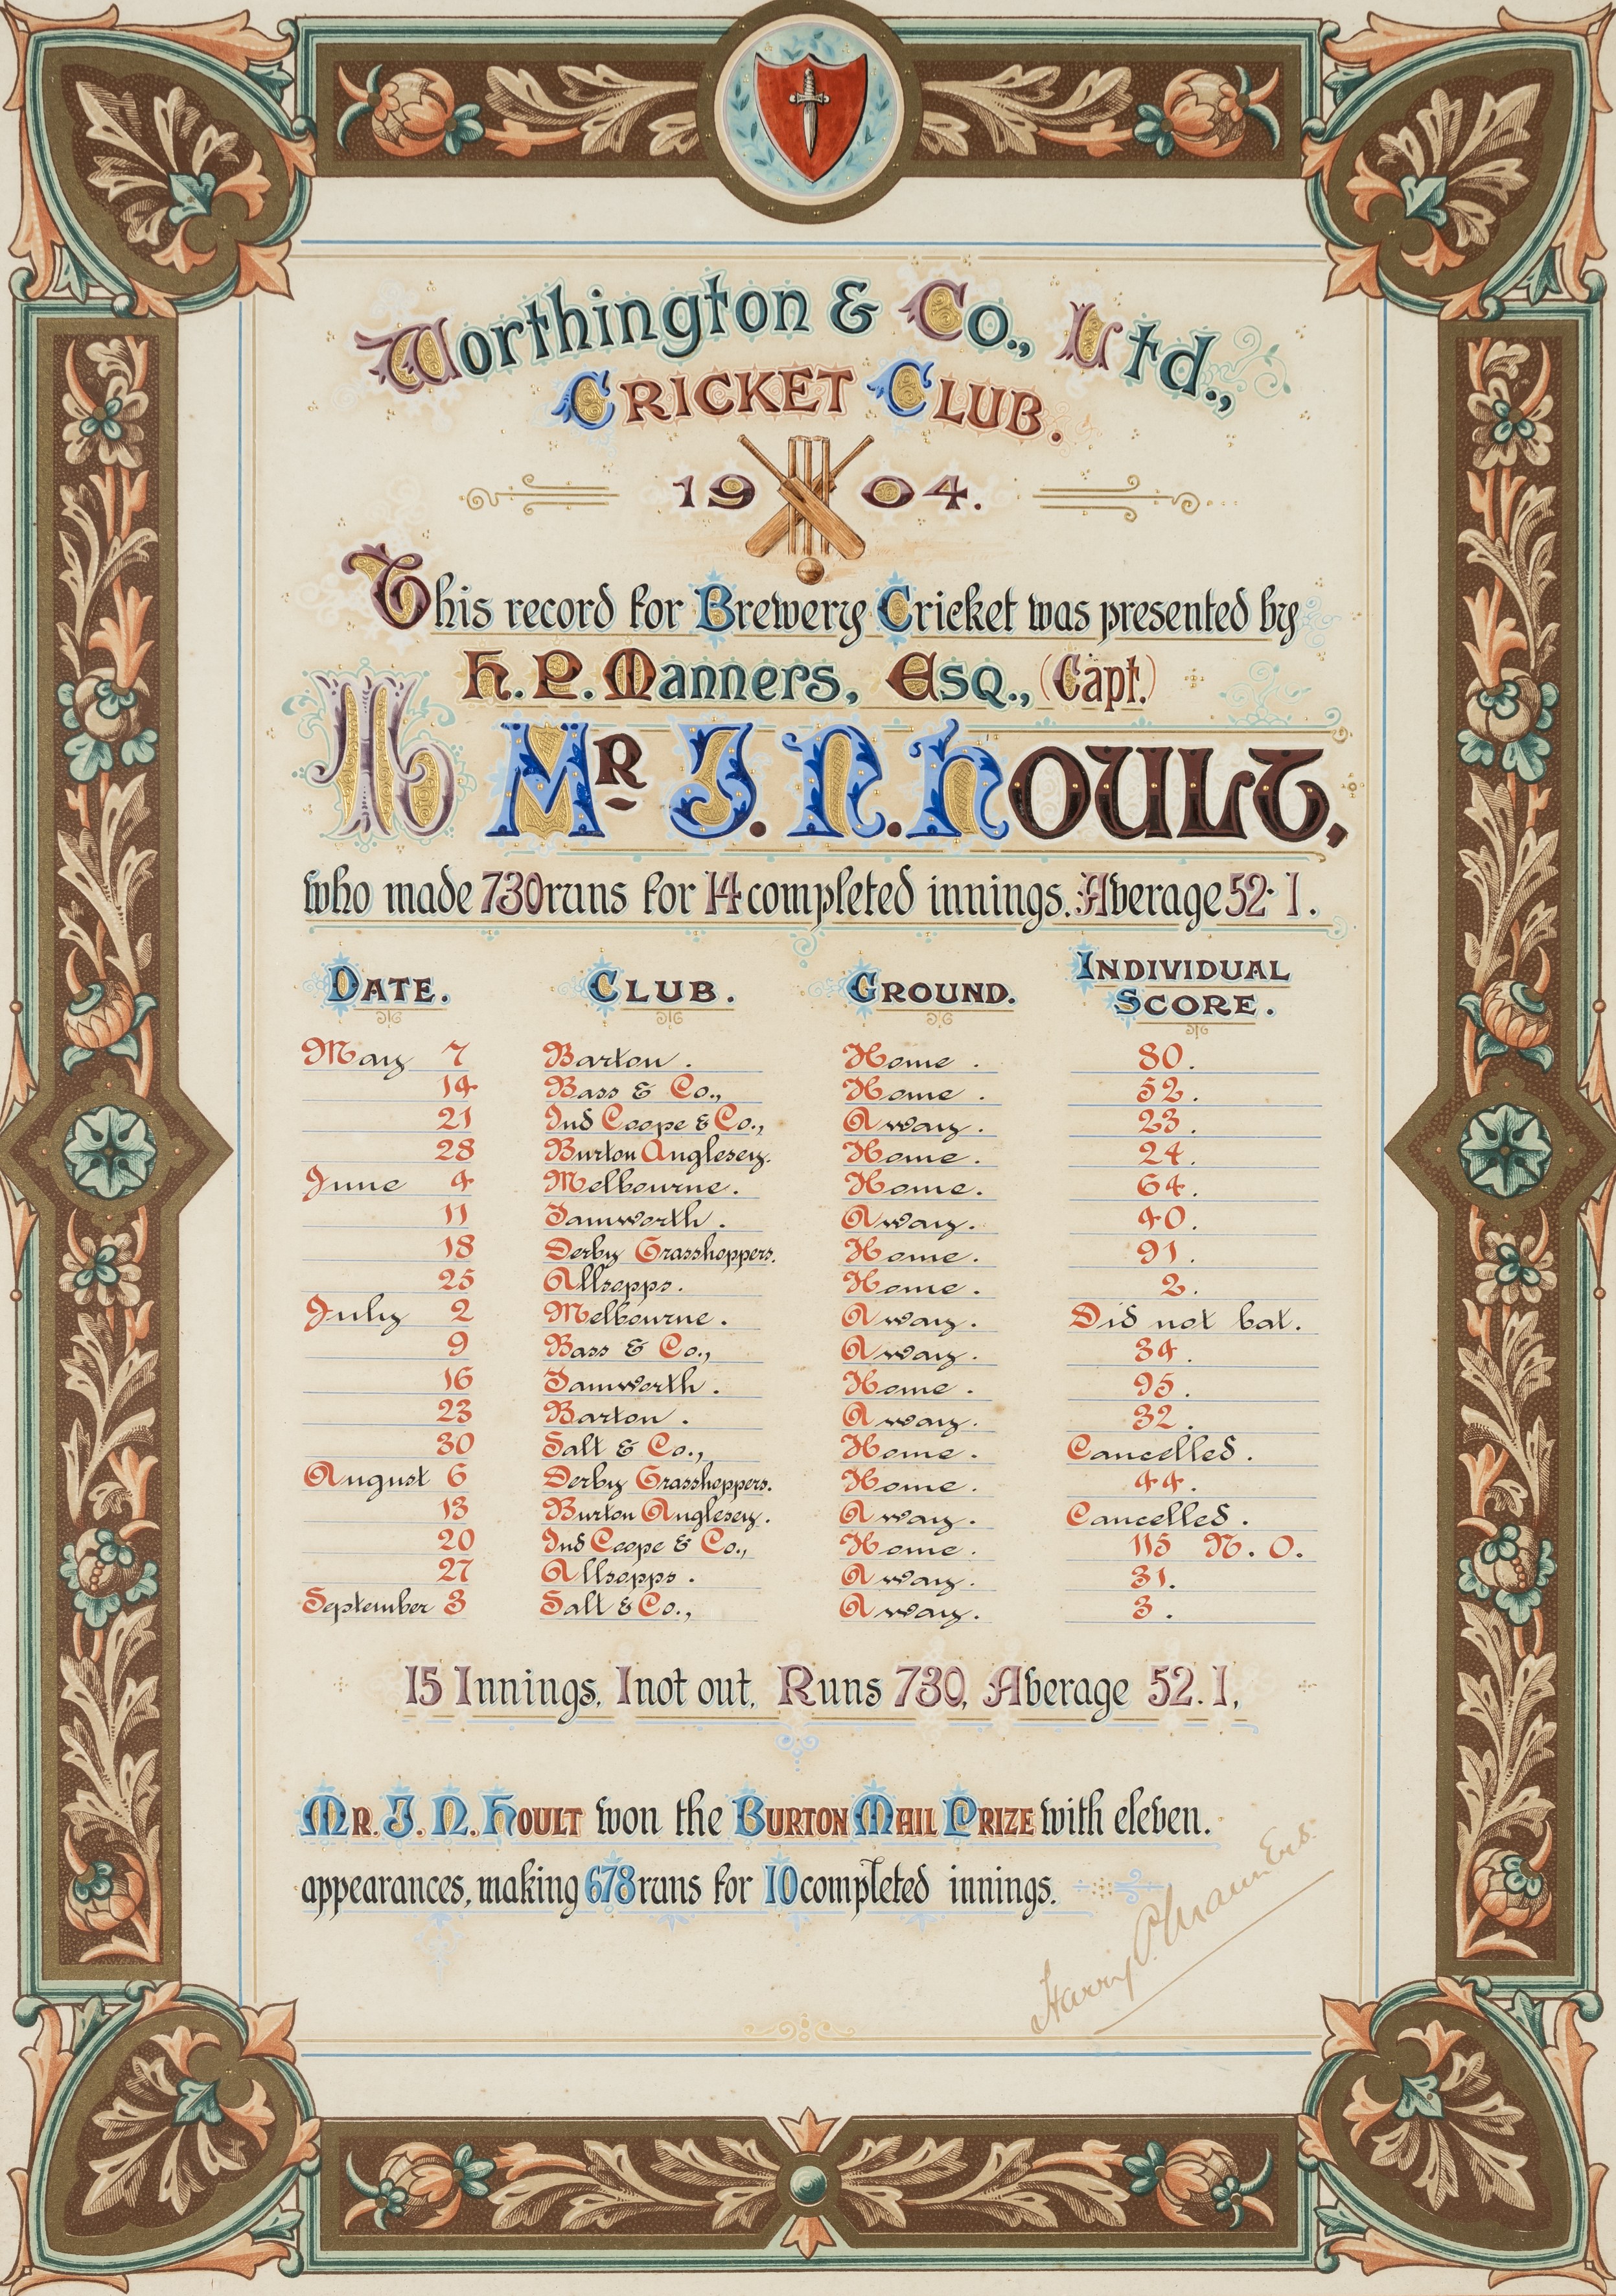 Worthington & Co., Ltd.,
CRICKET CLUB.
1904.
This record for Brewery Cricket was presented by
H. P. Manners, Esq., (Capt.)
To Mr J. N. Hoult,
who made 730 runs for 14 completed innings. Average 52·1.
DATE. CLUB. GROUND. INDIVIDUAL SCORE.
May 7 Barton. Home. 80.
14 Bass & Co., Home. 52.
21 Ind Coope & Co., Away. 23.
28 Burton Anglesey. Home. 24.
June 4 Melbourne. Home. 64.
11 Tamworth. Away. 40.
18 Derby Grasshoppers. Home. 91.
25 Allsopps. Home. 2.
July 2 Melbourne. Away. Did not bat.
9 Bass & Co., Away. 34.
16 Tamworth. Home. 95.
23 Barton. Away. 32.
30 Salt & Co., Home. Cancelled.
August 6 Derby Grasshoppers. Home. 44.
13 Burton Anglesey. Away. Cancelled.
20 Ind Coope & Co., Home. 115 N. O.
27 Allsopps. Away. 31.
September 3 Salt & Co., Away. 3.
15 Innings, 1 not out, Runs 730, Average 52.1,
MR. J. N. HOULT won the BURTON MAIL PRIZE with eleven.
appearances, making 678 runs for 10 completed innings.
Harry P. Manners.